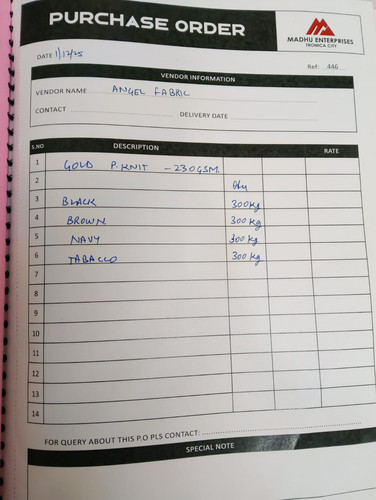 PURCHASE ORDER
MADHU ENTERPRISES
TRONICA CITY
DATE 1/12/25
Ref: 446
VENDOR INFORMATION
VENDOR NAME ANGEL FABRIC
CONTACT
DELIVERY DATE
S.NO DESCRIPTION RATE
1 GOLD P. KNIT - 230GSM.
2 Qty
3 BLACK 300kg
4 BROWN 300 kg
5 NAVY 300 kg
6 TABACCO 300 kg
7
8
9
10
11
12
13
14
FOR QUERY ABOUT THIS P.O PLS CONTACT:
SPECIAL NOTE